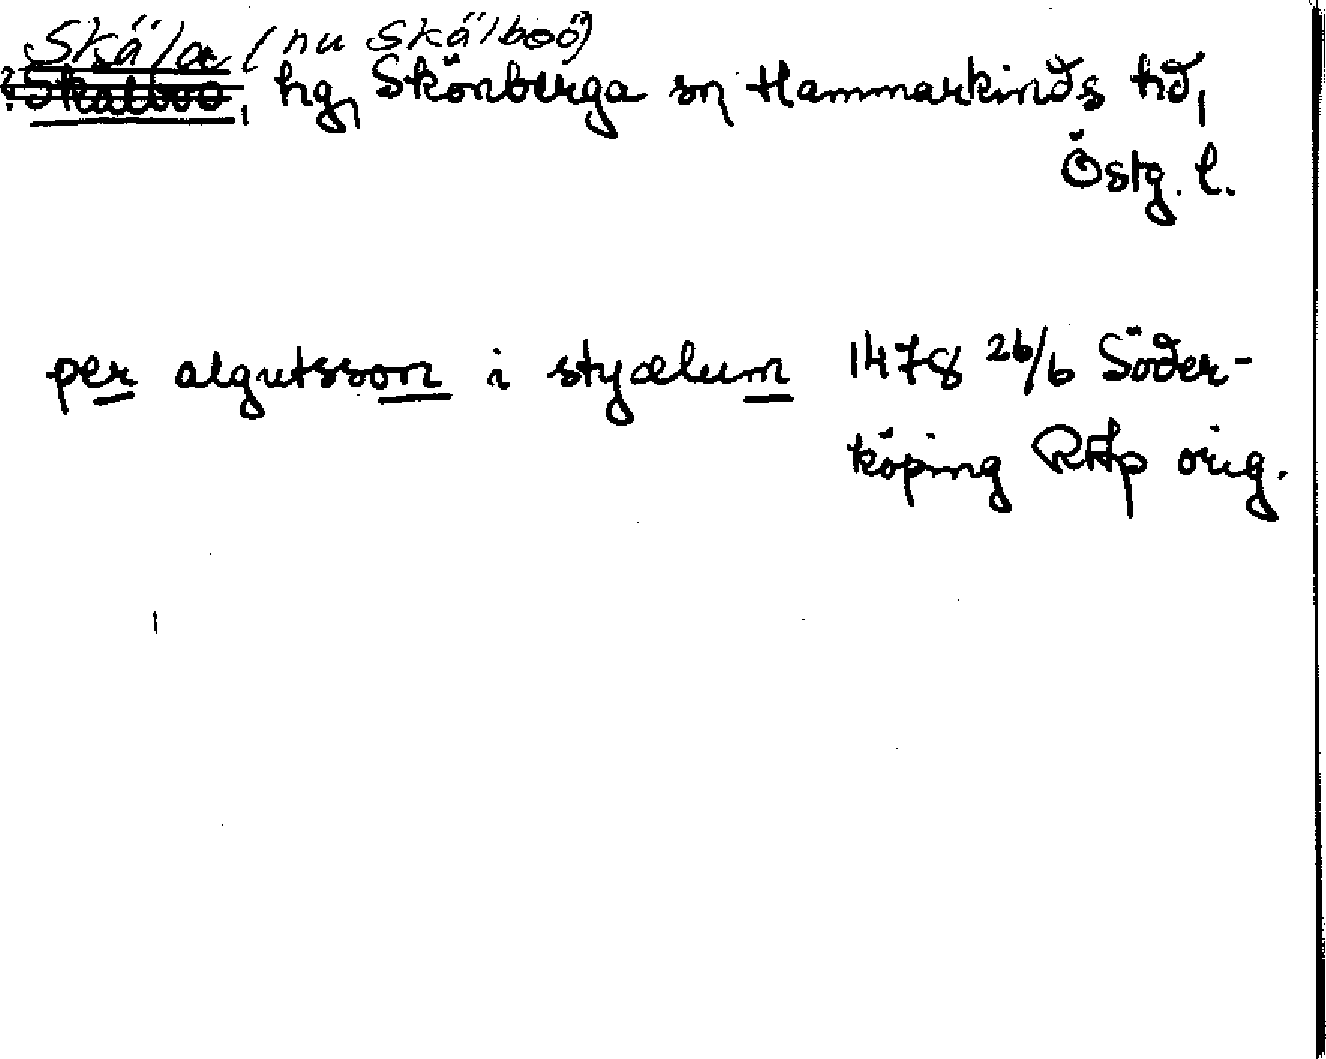 Skäla (nu Skälboö)
? Skälboo, hg, Skönberga sn Hammarkinds hd,
Östg. l.
per algutsson i styælum 1478 26/6 Söder-
köping RAp orig.